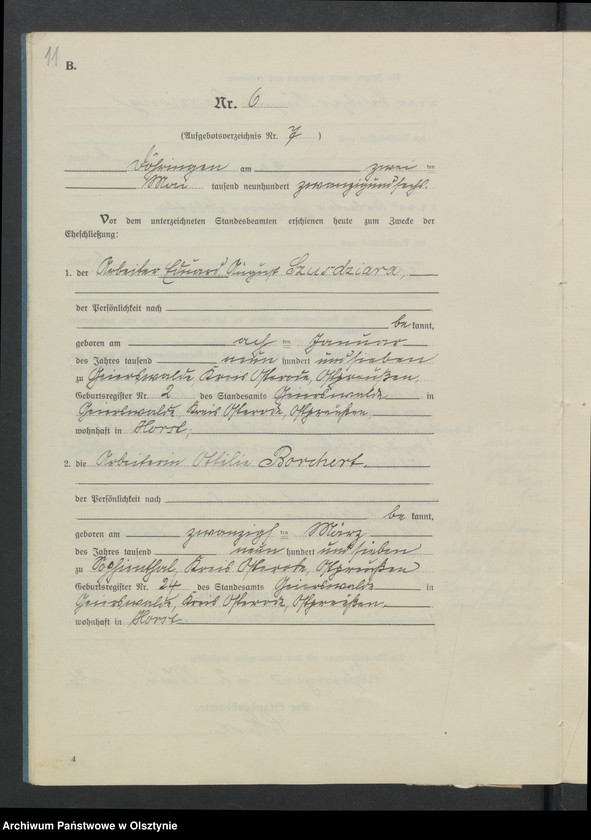 11
B.
Nr. 6
(Aufgebotsverzeichnis Nr. 7 )
Döhringen am zwei ten
Mai tausend neunhundert zwanzigundsechs.
Vor dem unterzeichneten Standesbeamten erschienen heute zum Zwecke der
Eheschließung:
1. der Arbeiter Eduard August Szusdziara,
der Persönlichkeit nach
be kannt,
geboren am ach ten Januar
des Jahres tausend neun hundert und sieben
zu Geierswalde, Kreis Osterode, Ostpreußen.
Geburtsregister Nr. 2 des Standesamts Geierswalde in
Geierswalde, Kreis Osterode, Ostpreußen
wohnhaft in Horst,
2. die Arbeiterin Ottilie Borchert.
der Persönlichkeit nach
be kannt,
geboren am zwanzigs ten März
des Jahres tausend neun hundert und sieben
zu Sophienthal, Kreis Osterode, Ostpreußen
Geburtsregister Nr. 24 des Standesamts Geierswalde in
Geierswalde, Kreis Osterode, Ostpreußen.
wohnhaft in Horst
4
Archiwum Państwowe w Olsztynie